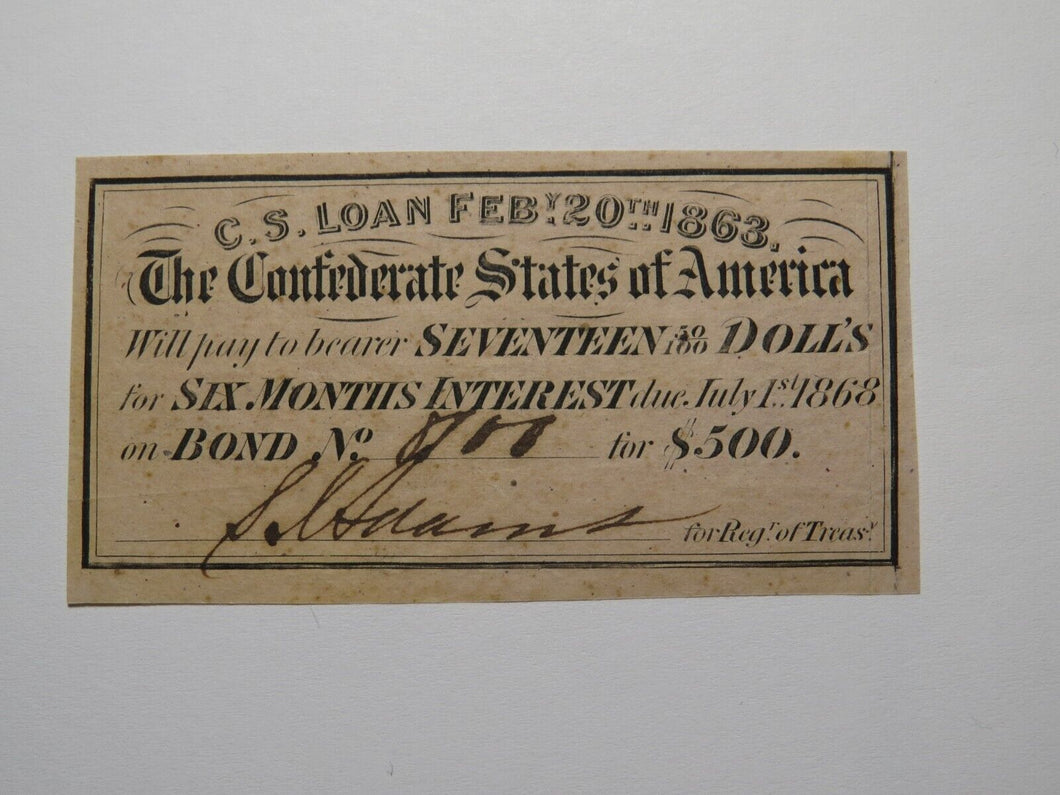 C. S. LOAN FEBY. 20TH 1863.
The Confederate States of America
Will pay to bearer SEVENTEEN 50/100 DOLL'S
for SIX MONTHS INTEREST due July 1st 1868
on BOND No. 8700 for $500.
S. Adams
for Regr. of Treasy.